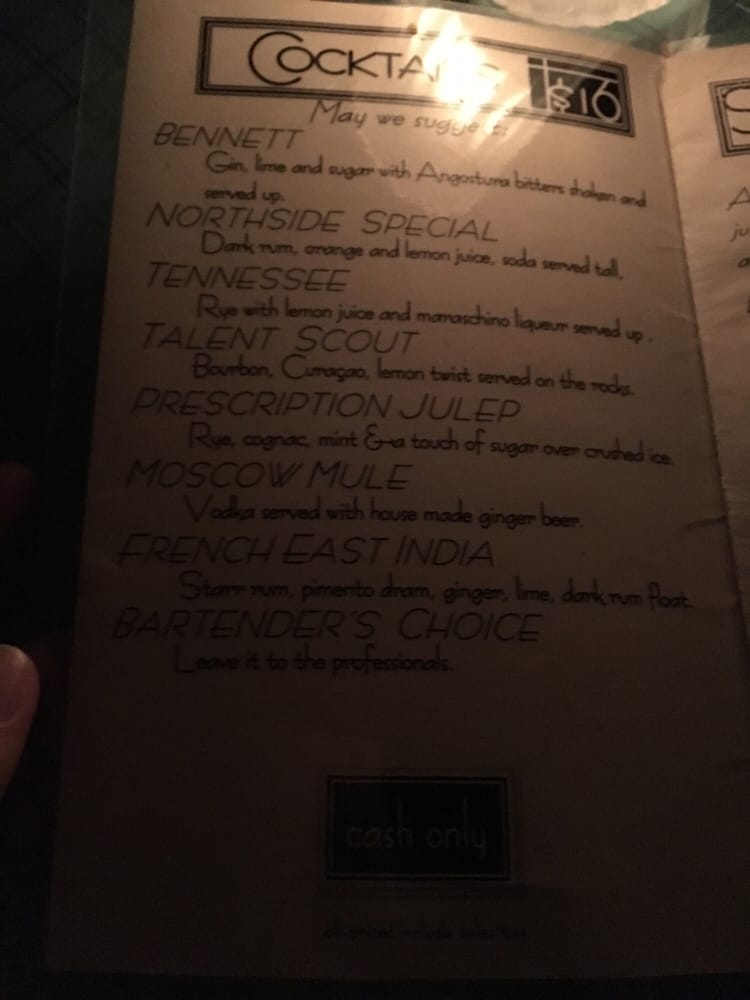 COCKTAILS $16
May we suggest:
BENNETT
Gin, lime and sugar with Angostura bitters shaken and
served up.
NORTHSIDE SPECIAL
Dark rum, orange and lemon juice, soda served tall.
TENNESSEE
Rye with lemon juice and marraschino liqueur served up.
TALENT SCOUT
Bourbon, Curaçao, lemon twist served on the rocks.
PRESCRIPTION JULEP
Rye, cognac, mint & a touch of sugar over crushed ice.
MOSCOW MULE
Vodka served with house made ginger beer.
FRENCH EAST INDIA
Starr rum, pimento dram, ginger, lime, dark rum float.
BARTENDER'S CHOICE
Leave it to the professionals.
cash only
all prices include sales tax